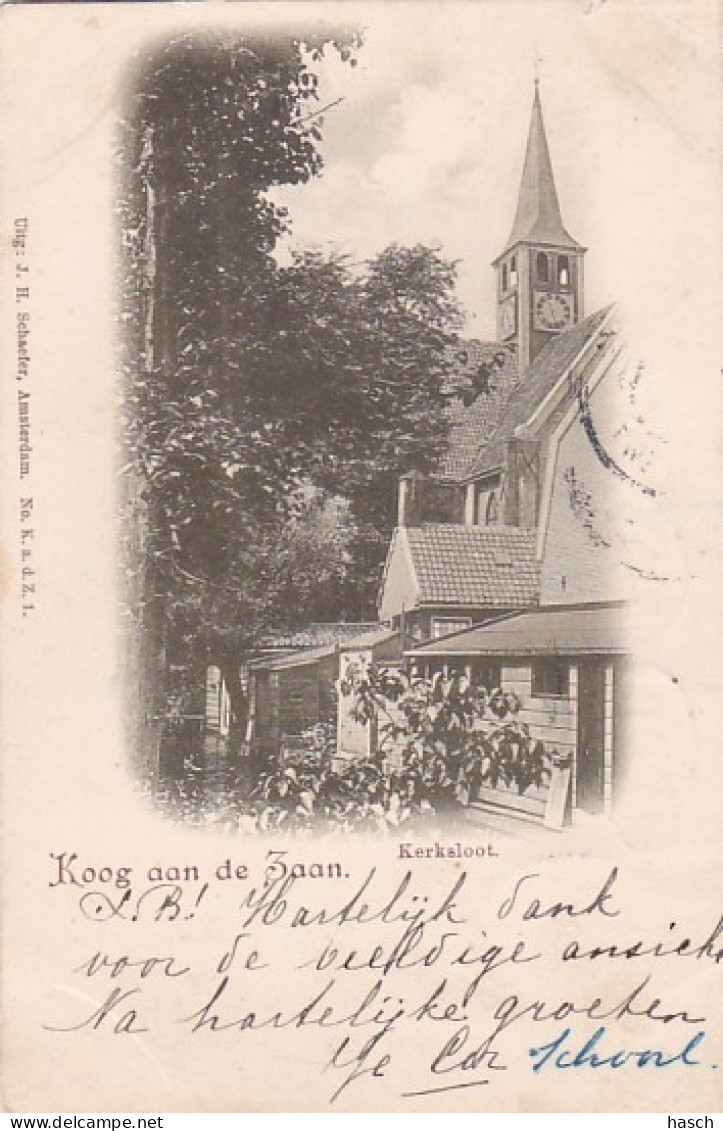 Uitg: J. H. Schaefer, Amsterdam. No. K. a. d. Z. 1.
Koog aan de Zaan.
Kerksloot.
L.B! Hartelijk dank
voor de veeldige ansicht
Na hartelijke groeten
Cor Schoorl.
hasch
Delcampe.net